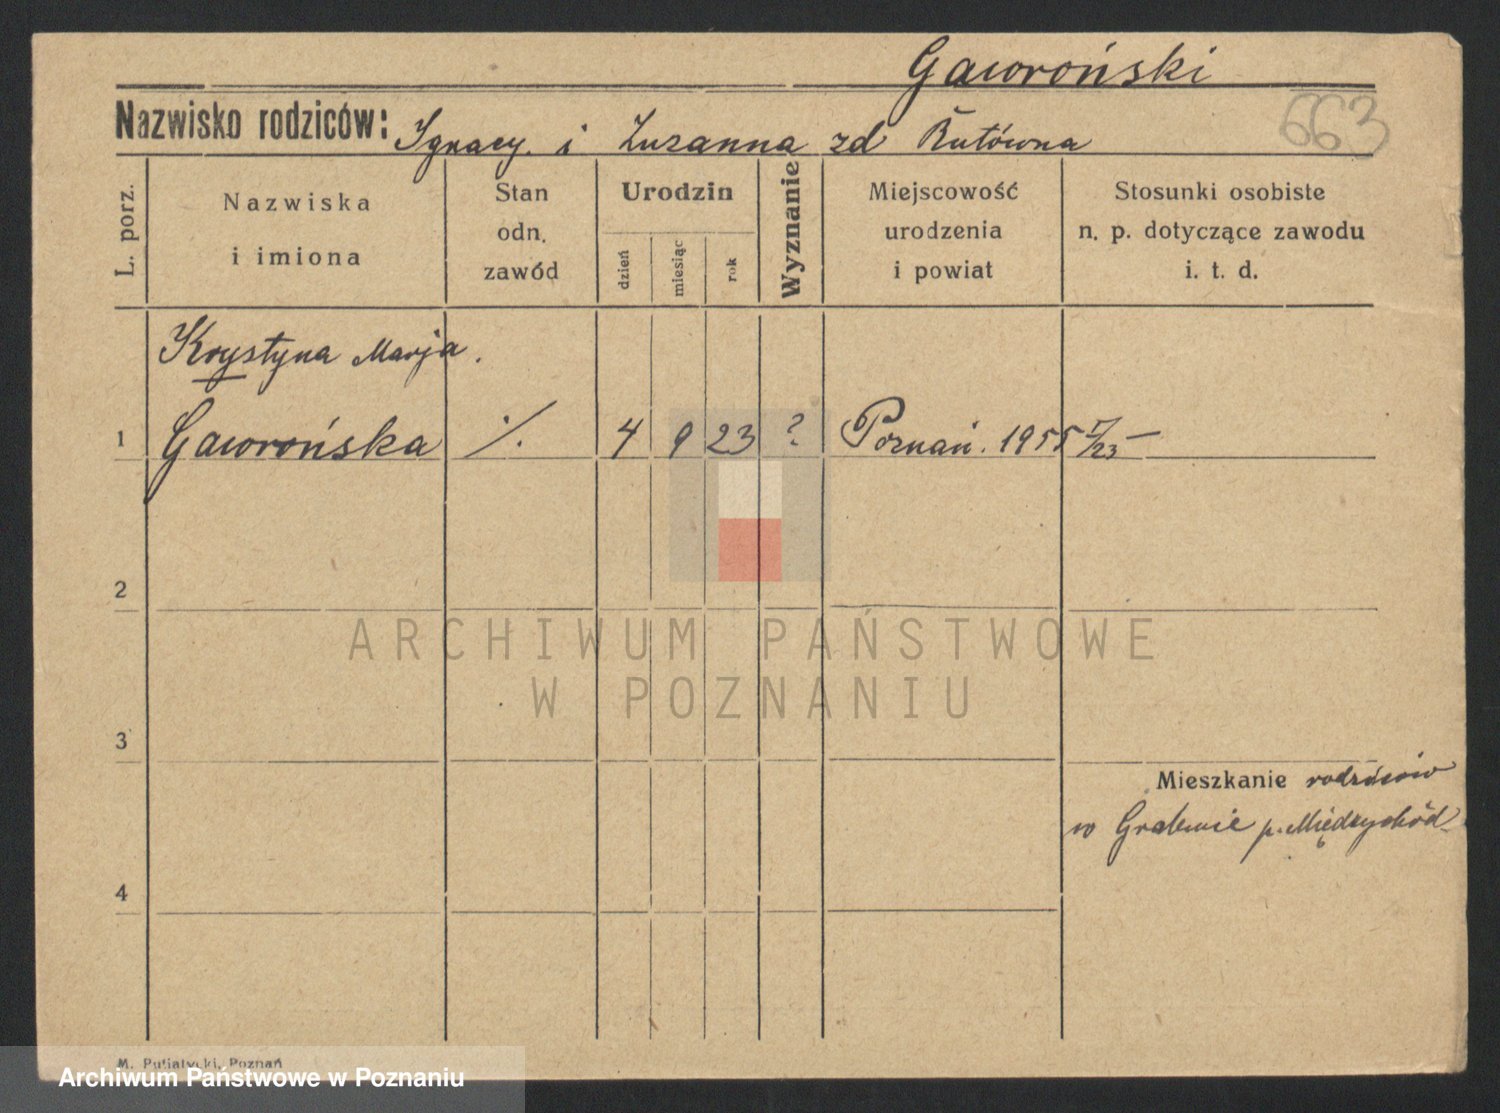 Gaworoński
663
Nazwisko rodziców: Ignacy i Zuzanna zd Rutówna
L. porz.
Nazwiska
i imiona
Stan
odn.
zawód
Urodzin
dzień
miesiąc
rok
Wyznanie
Miejscowość
urodzenia
i powiat
Stosunki osobiste
n. p. dotyczące zawodu
i. t. d.
Krystyna Marja.
1 Gaworońska ./. 4 9 23 ? Poznań. 1955 I/23 —
2
ARCHIWUM PAŃSTWOWE
W POZNANIU
3
Mieszkanie rodziców
w p. Międzychód
4
M. Putiatycki, Poznań
Archiwum Państwowe w Poznaniu